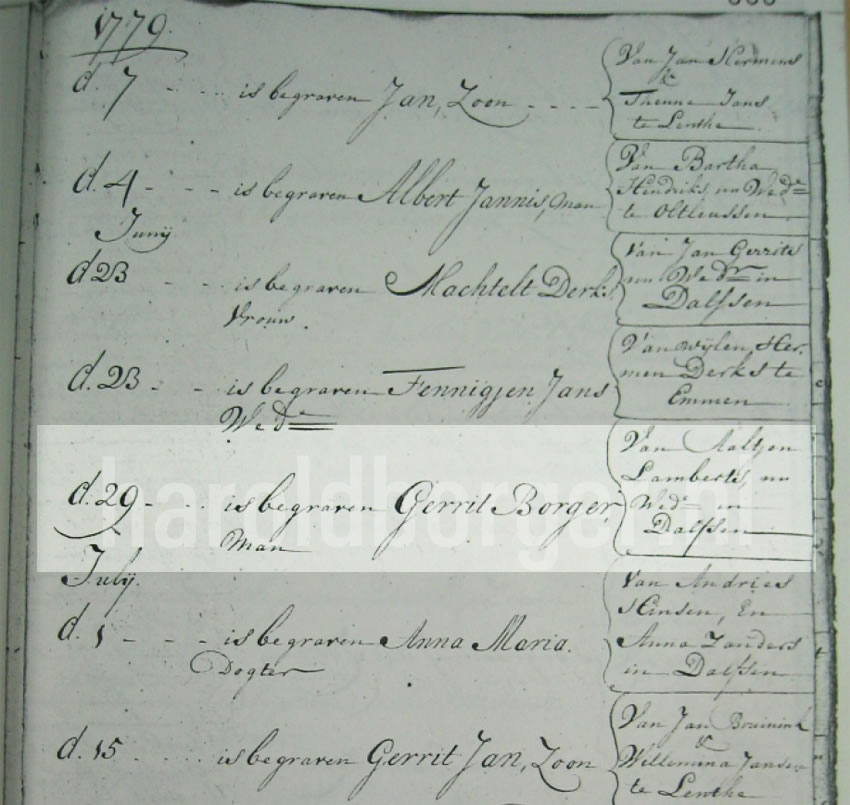 1779.
d. 7 - - - - is begraven Jan, Zoon - - - -
Van Jan Hermens
&
Theunne Jans
te Lenthe
d. 4 - - - - is begraven Albert Jannis, man
Van Bartha
Hendriks, nu Wed^e
te Oltleussen
Junij
d 23 - - is begraven Machtelt Derks
Vrouw.
Van Jan Gerrits
nu Wed^r in
Dalfsen
d. 23 - - is begraven Fennigjen Jans
Wed^e
Van wylen, Her.
men Derks te
Emmen
d. 29 - - - is begraven Gerrit Borger
Man
Van Aaltjen
Lamberts, nu
Wed^e in
Dalfsen
haroldborger.nl
July.
d. 1 - - - - is begraven Anna Maria.
Dogter
Van Andries
Hinsen, En
Anna Zanders
in Dalfsen
d. 15 - - - - is begraven Gerrit Jan, Zoon
Van Jan Bruinink
&
Willemina Jansen
te Lenthe